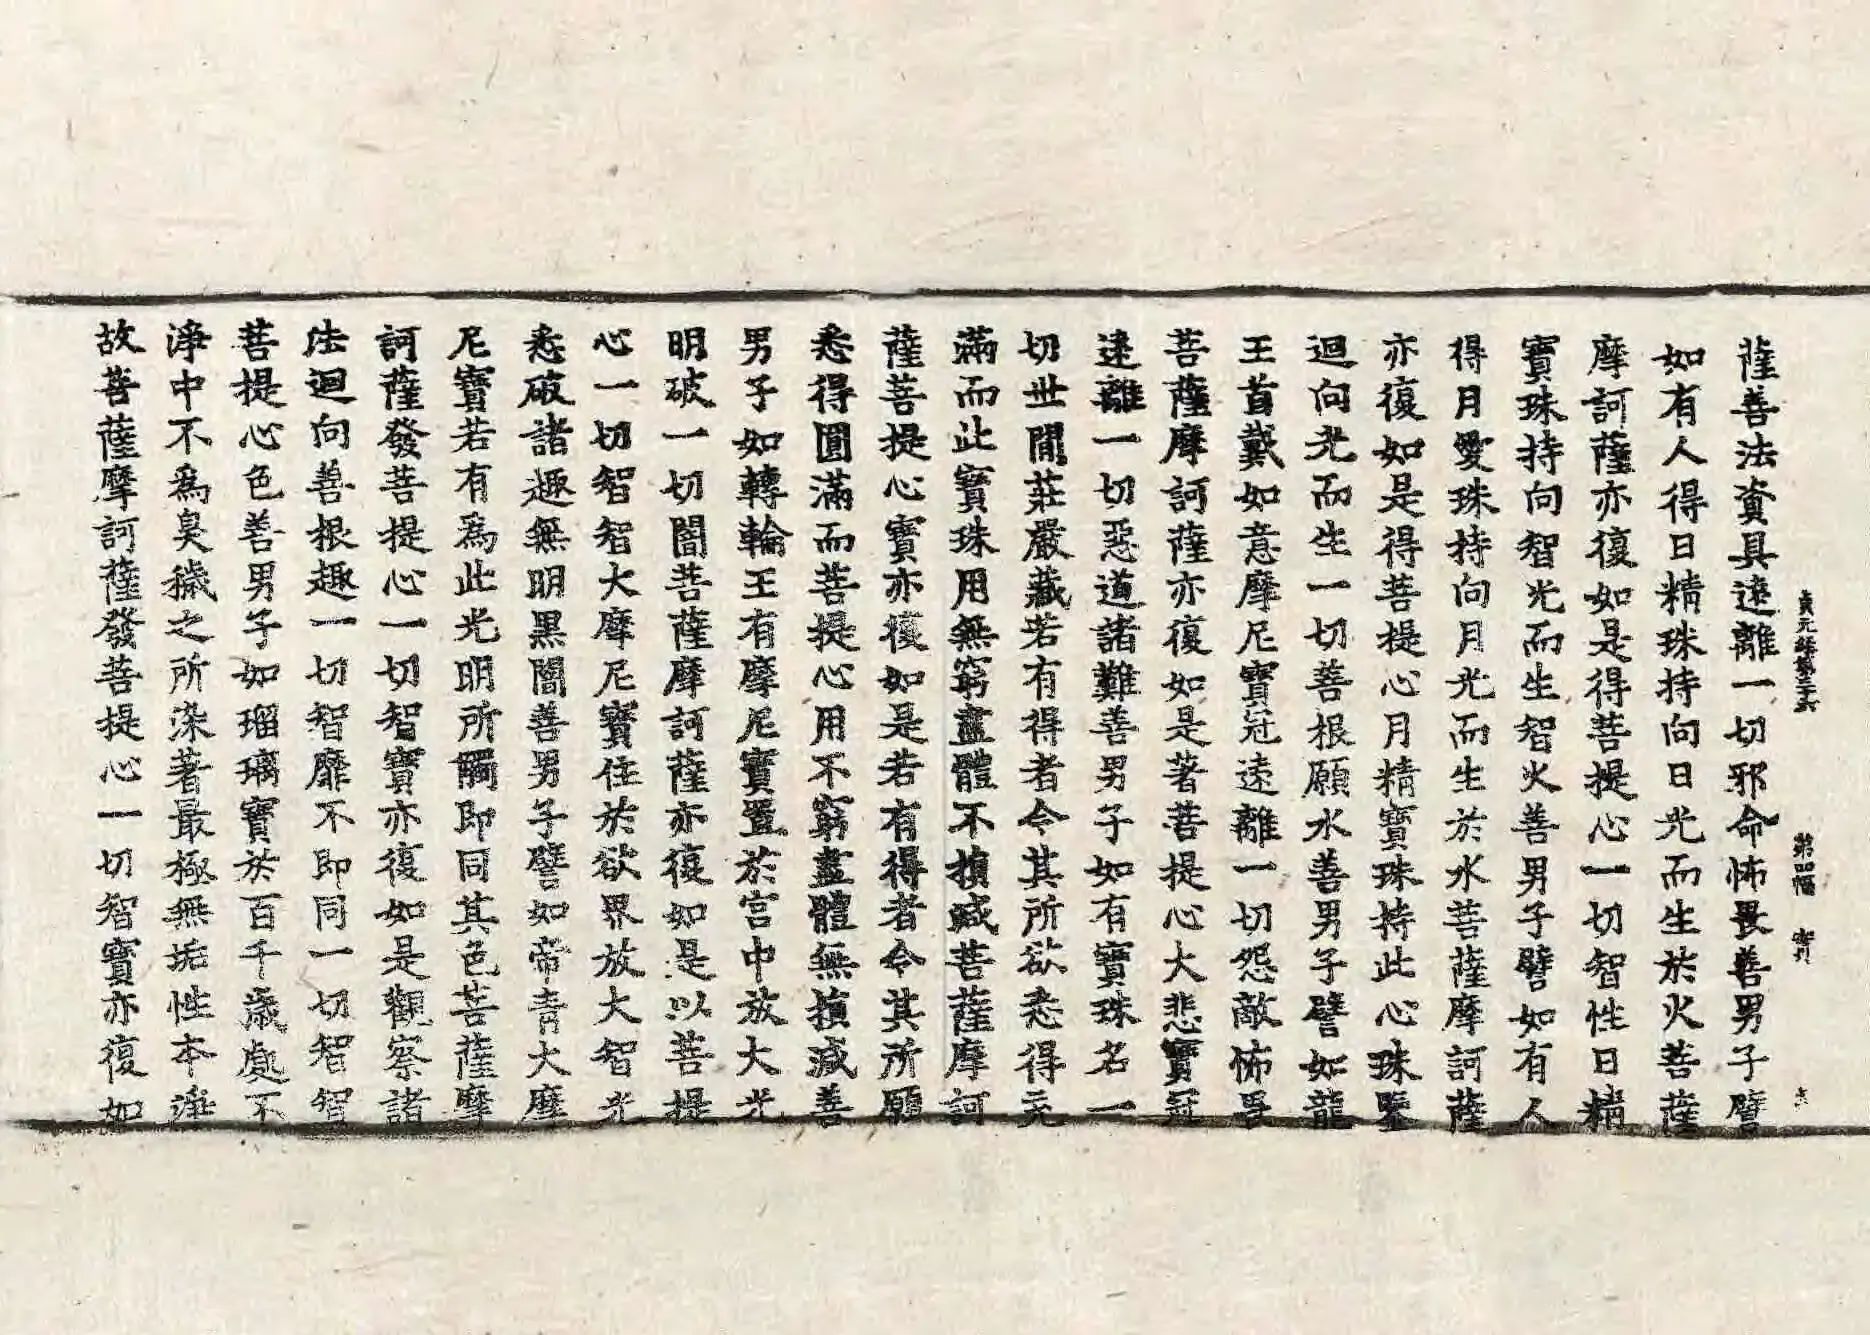 貞元經第三十六 第四幅 實
薩善法資具遠離一切邪命怖畏善男子譬
如有人得日精珠持向日光而生於火菩薩
摩訶薩亦復如是得菩提心一切智性日精
寶珠持向智光而生智火善男子譬如有人
得月愛珠持向月光而生於水菩薩摩訶薩
亦復如是得菩提心月精寶珠持此心珠鑒
迴向光而生一切善根願水善男子譬如龍
王首戴如意摩尼寶冠遠離一切怨敵怖畏
菩薩摩訶薩亦復如是著菩提心大悲寶冠
遠離一切惡道諸難善男子如有寶珠名一
切世間莊嚴藏若有得者令其所欲悉得充
滿而此寶珠用無窮盡體不損減菩薩摩訶
薩菩提心寶亦復如是若有得者令其所願
悉得圓滿而菩提心用不窮盡體無損減善
男子如轉輪王有摩尼寶置於宮中放大光
明破一切闇菩薩摩訶薩亦復如是以菩提
心一切智智大摩尼寶住於欲界放大智光
悉破諸趣無明黑闇善男子譬如帝青大摩
尼寶若有為此光明所觸即同其色菩薩摩
訶薩發菩提心一切智寶亦復如是觀察諸
法迴向善根趣一切智靡不即同一切智智
菩提心色善男子如瑠璃寶於百千歲處不
淨中不為臭穢之所染著最極無垢性本淨
故菩薩摩訶薩發菩提心一切智寶亦復如